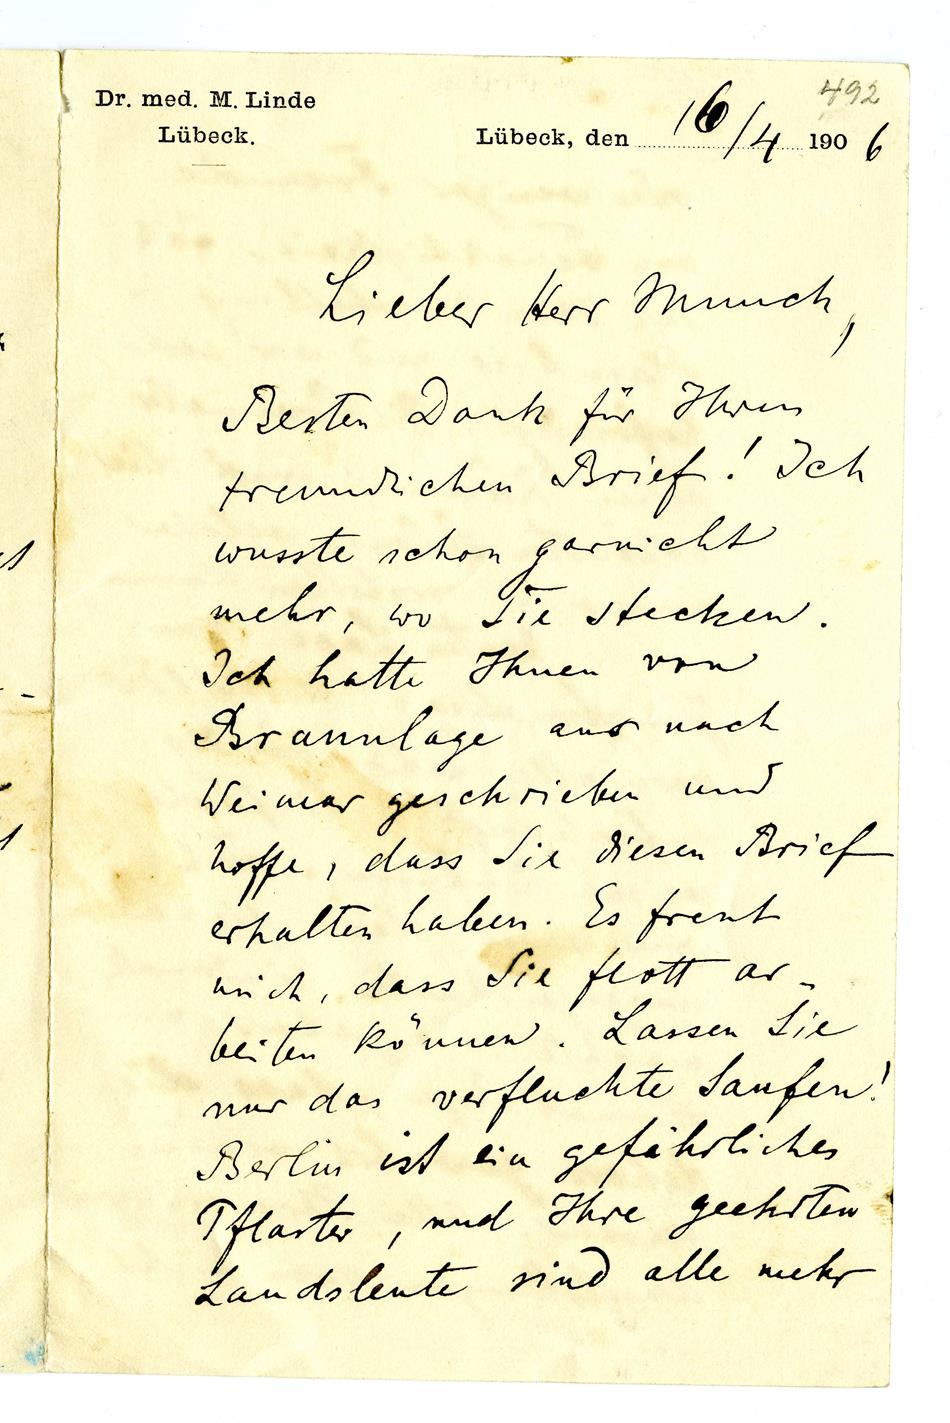 492
Dr. med. M. Linde
Lübeck.
Lübeck, den 16/4 1906
Lieber Herr Munch,
Besten Dank für Ihren
freundlichen Brief! Ich
wusste schon garnicht
mehr, wo Sie stecken.
Ich hatte Ihnen von
Braunlage aus nach
Weimar geschrieben und
hoffe, dass Sie diesen Brief
erhalten haben. Es freut
mich, dass Sie flott ar-
beiten können. Lassen Sie
nur das verfluchte Saufen!
Berlin ist ein gefährliches
Pflaster, und Ihre geehrten
Landsleute sind alle mehr